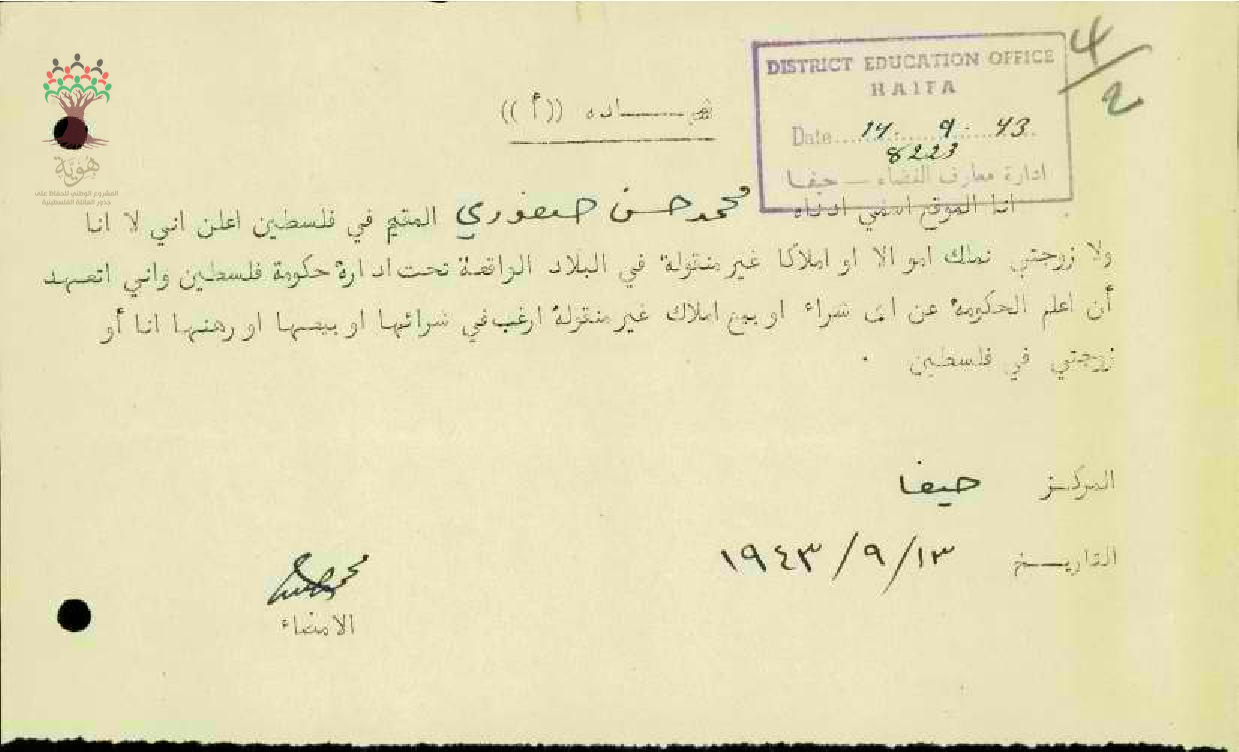 4/2
DISTRICT EDUCATION OFFICE
HAIFA
Date 14. 9. 43
8223
ادارة معارف القضاء — حيفا
شهـــادة ((أ))
هُوِيَّة
المشروع الوطني للحفاظ على
جذور العائلة الفلسطينية
انا الموقع اسمي ادناه محمد حسن صفوري المقيم في فلسطين اعلن اني لا انا
ولا زوجتي نملك اموالا او املاكا غير منقولة في البلاد الواقعة تحت ادارة حكومة فلسطين واني اتعهد
أن اعلم الحكومة عن اى شراء او بيع املاك غير منقولة ارغب في شرائها او بيعها او رهنها انا أو
زوجتي في فلسطين .
المركز حيفا
التاريخ ١٣/٩/١٩٤٣
الامضاء